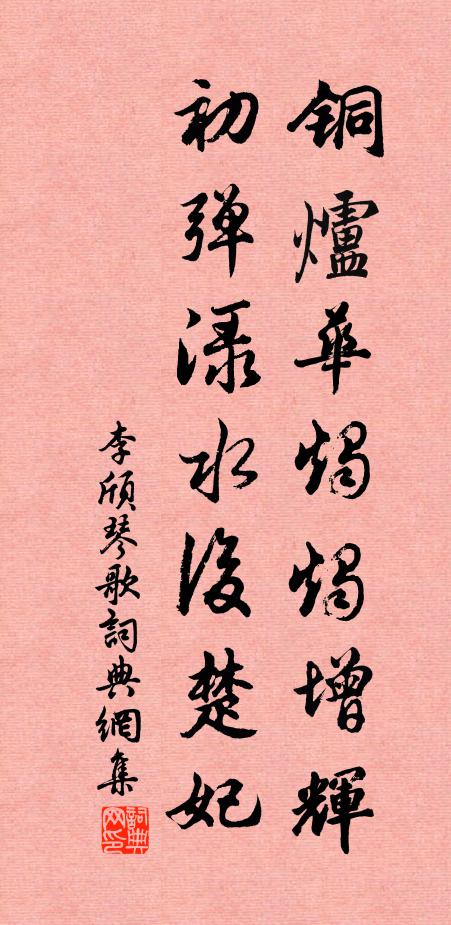 銅爐華燭燭增輝
初弹渌水後楚妃
李頎琴歌詞典網集
詞典网印